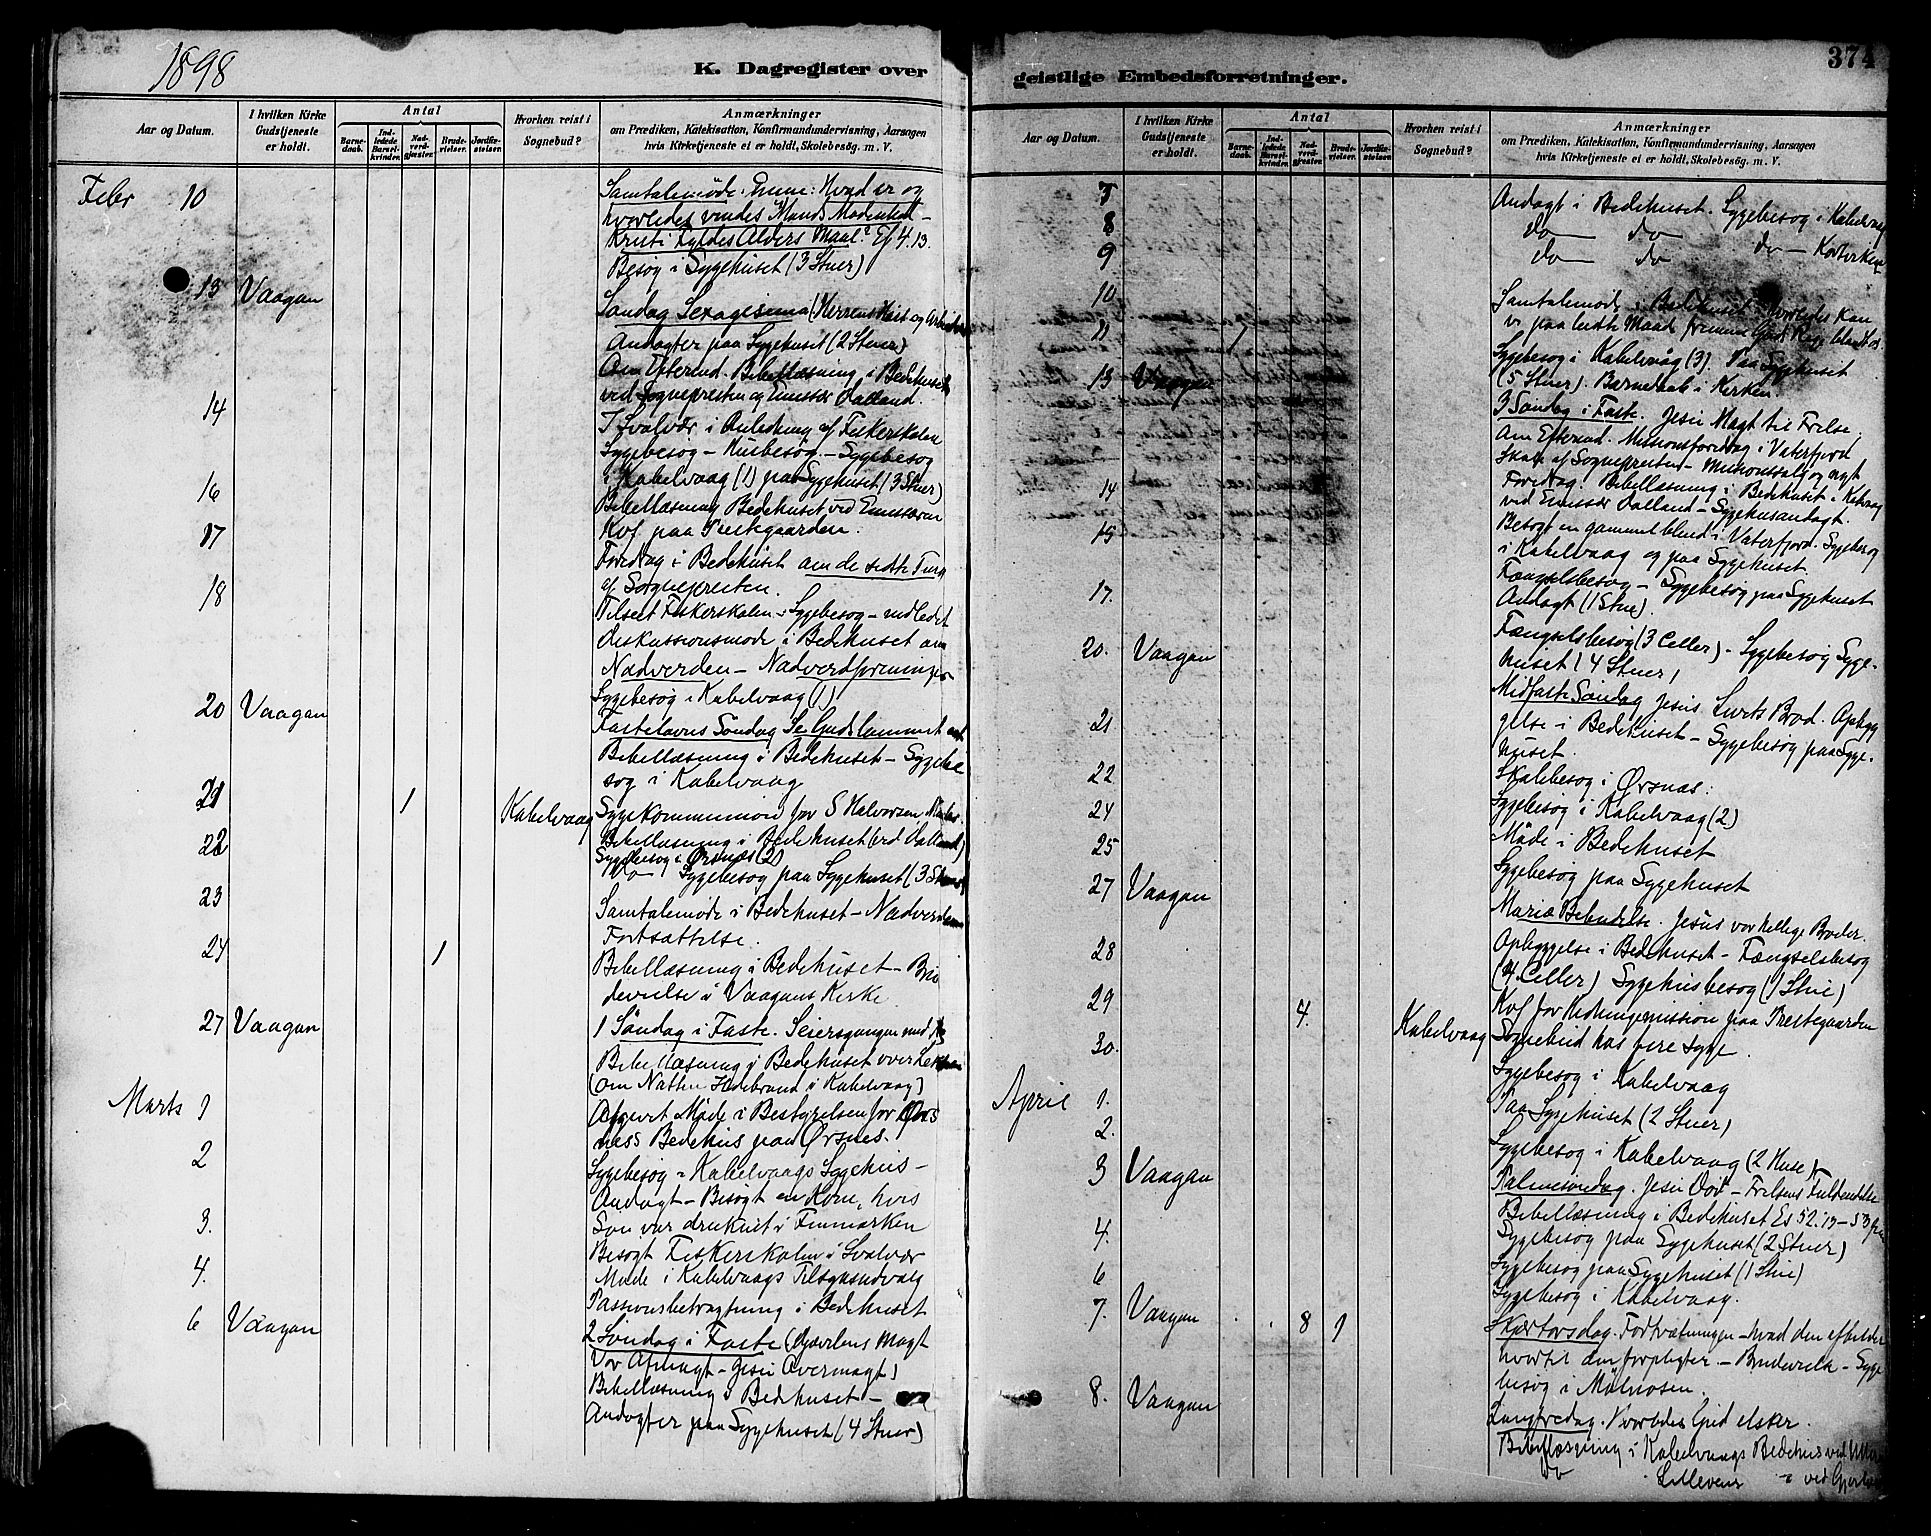 1898
K. Dagregister over
Aar og Datum.
I hvilken Kirke Gudstjeneste er holdt.
Antal
Barnedaab.
Indledede Barselkvinder.
Nadverdgjester.
Brudevielser.
Jordfæstelser.
Hvorhen reist i Sognebud?
Anmærkninger
om Prædiken, Katekisation, Konfirmandundervisning, Aarsagen
hvis Kirketjeneste ei er holdt, Skolebesög. m. V.
Febr 10 Samtalemøde. Emne: Hvad er og
hvorledes vindes Mands Modenhed -
Kristi Fyldes Alders Maal? Ef 4.13.
Besøg i Sygehuset (3 Stuer)
13 Vaagan Søndag Sexagesima (Herrens Høst og
Andagter paa Sygehuset (2 Stuer)
Om Eftermd. Bibellæsning i Bedehuset
ved Sognepresten og Emissær Dalland.
14 I Svolvær i Anledning af Fiskerskolen
Sygebesøg - Husbesøg. - Sygebesøg
i Kabelvaag (1) paa Sygehuset (3 Stuer)
16 Bibellæsning Bedehuset ved Emissæren
17 Kvf. paa Prestegaarden.
Foredrag i Bedehuset om de sidste
af Sognepresten.
18 Tilseet Fiskerskolen. Sygebesøg - indledet
diskussionsmøde i Bedehuset om
Nadverden - Nadverd
Sygebesøg i Kabelvaag (1)
20 Vaagan Fastelavns Søndag Se Gudslammet
Bibellæsning i Bedehuset - Sygebe
søg i Kabelvaag
21 1 Kabelvaag Sygekommunion for S Halvorsen
22 Bibellæsning i Bedehuset (ved Dalland)
Sygebesøg i Ørsnæs (2)
Do Sygebesøg paa Sygehuset (3 Stuer)
23 Samtalemøde i Bedehuset - Nadverden
Fortsættelse.
24 1 Bibellæsning i Bedehuset - Bru
devielse i Vaagans Kirke
27 Vaagan 1 Søndag i Faste. Seiersgangen med
Bibellæsning i Bedehuset over
(om Natten Ildebrand i Kabelvaag)
Marts 1 Afsluttet Møde i Bestyrelsen for Ørs
næs Bedehus paa Ørsnes.
2 Sygebesøg - Kabelvaags Sygehus -
Andagt - Besøgt en Kone, hvis
Søn var druknet i Finmarken
3. Besøgt Fiskerskolen i Svolvær
4. Møde i Kabelvaags Tilsynsudvalg
Passionsbetragtning i Bedehuset
6 Vaagan 2 Søndag i Faste (Djævlens Magt
Vor Afmagt - Jesu Overmagt)
Bibellæsning i Bedehuset -
Andagter paa Sygehuset (4 Stuer)
374
geistlige Embedsforretninger.
Aar og Datum.
I hvilken Kirke Gudstjeneste er holdt.
Antal
Barnedaab.
Indledede Barselkvinder.
Nadverdgjester.
Brudevielser.
Jordfæstelser.
Hvorhen reist i Sognebud?
Anmærkninger
om Prædiken, Katekisation, Konfirmandundervisning, Aarsagen
hvis Kirketjeneste ei er holdt, Skolebesög. m. V.
Andagt i Bedehuset. Sygebesøg i Kabelvaag
8 do do
9 do do do -
10 Samtalemøde i Bedehuset: Hvorledes kan
vi paa bedste Maade fremme Guds Rige blandt os.
11 1 Sygebesøg i Kabelvaag (3). Paa Sygehuset
(5 Stuer). Barnedaab i Kirken.
13 Vaagan 3 Søndag i Faste. Jesu Magt til Frelse.
Om Eftermd. Missionsforedrag i Vaterfjord
Skole af Sognepresten - Missionssalg og nyt
Foredrag. Bibellæsning i Bedehuset i Kabelvaag
ved Emissær Dalland - Sygehusandagt.
14 Besøgt en gammel blind i Vaterfjord. Sygebesøg
i Kabelvaag og paa Sygehuset
15 Fængselsbesøg - Sygebesøg paa Sygehuset
Andagt (1 Stue).
17. Fængselsbesøg (3 Celler) - Sygebesøg Syge-
huset (4 Stuer)
20. Vaagan Midfaste Søndag Jesus Livets Brød. Opbyg
gelse i Bedehuset - Sygebesøg paa Syge-
huset.
21 Skolebesøg i Ørsnæs:
22 Sygebesøg i Kabelvaag (2)
24 Møde i Bedehuset
25 Sygebesøg paa Sygehuset
27 Vaagan Mariæ Bebudelse. Jesus vor hellige Broder.
Opbyggelse i Bedehuset - Fængselsbesøg
28 (4 Celler) Sygehusbesøg (1 Stue)
29 Kvf for Hedningemission paa Prestegaarden
4. Kabelvaag Sognebud hos fire syge.
30. Sygebesøg i Kabelvaag
April 1. Paa Sygehuset (2 Stuer)
2. Sygebesøg i Kabelvaag (2 Huse)
3 Vaagan Palmesøndag. Jesu Død - Frelsens Fuldendelse
Bibellæsning i Bedehuset Es 52.13-53
4. Sygebesøg paa Sygehuset (2 Stuer)
Sygebesøg paa Sygehuset (1 Stue)
6 Sygebesøg i Kabelvaag.
7. Vaagan 8 1 Skjærtorsdag. - hvad den
hvortil den forpligter. - Brudevielse - Syge
besøg i Mølnosen.
8. Vaagan Langfredag. Hvorledes Gud elsker.
Bibellæsning i Kabelvaags Bedehus ved
do - ved